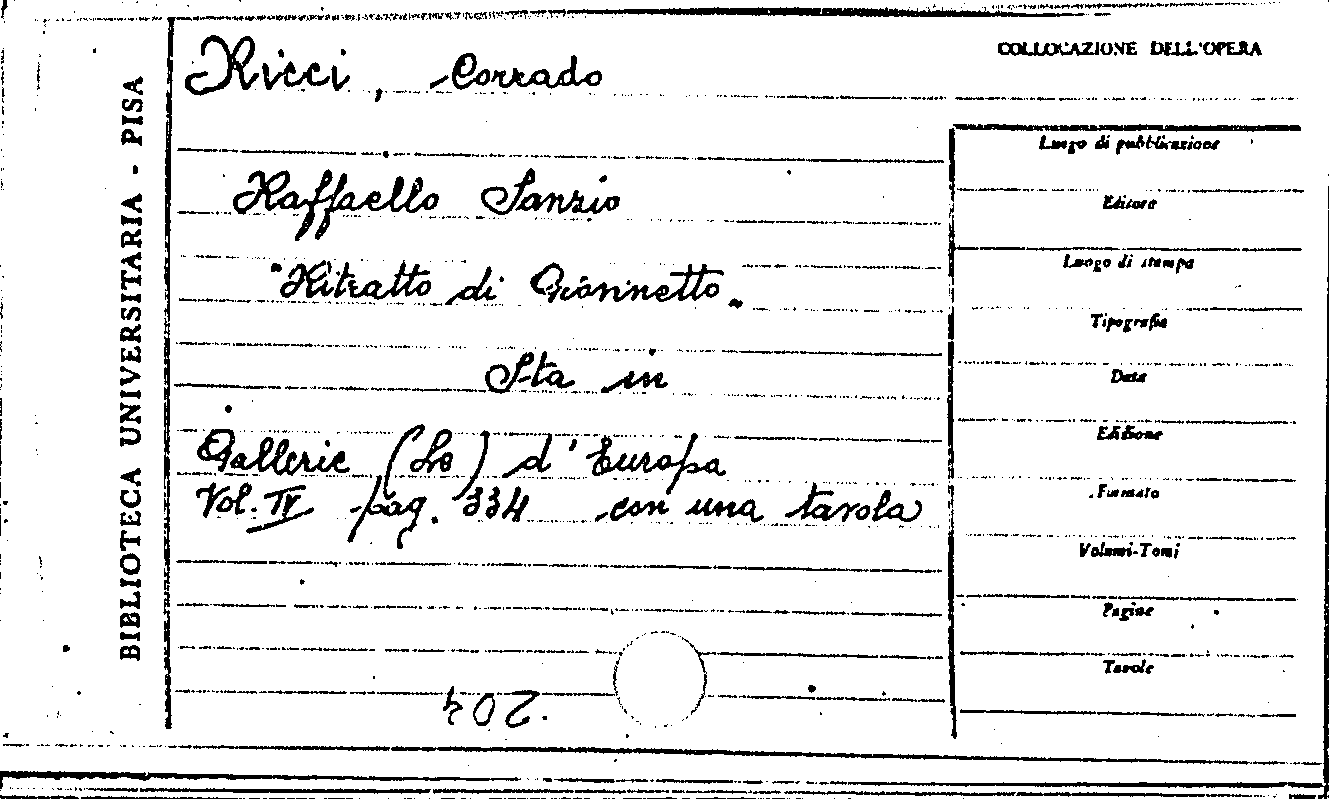 BIBLIOTECA UNIVERSITARIA - PISA
Ricci, Corrado
COLLOCAZIONE DELL'OPERA
Raffaello Sanzio
"Ritratto di Giannetto"
Sta in
Gallerie (Le) d'Europa
Vol. IV pag. 334 con una tavola
Luogo di pubblicazione
Editore
Luogo di stampa
Tipografia
Data
Edizione
Formato
Volumi-Tomi
Pagine
Tavole